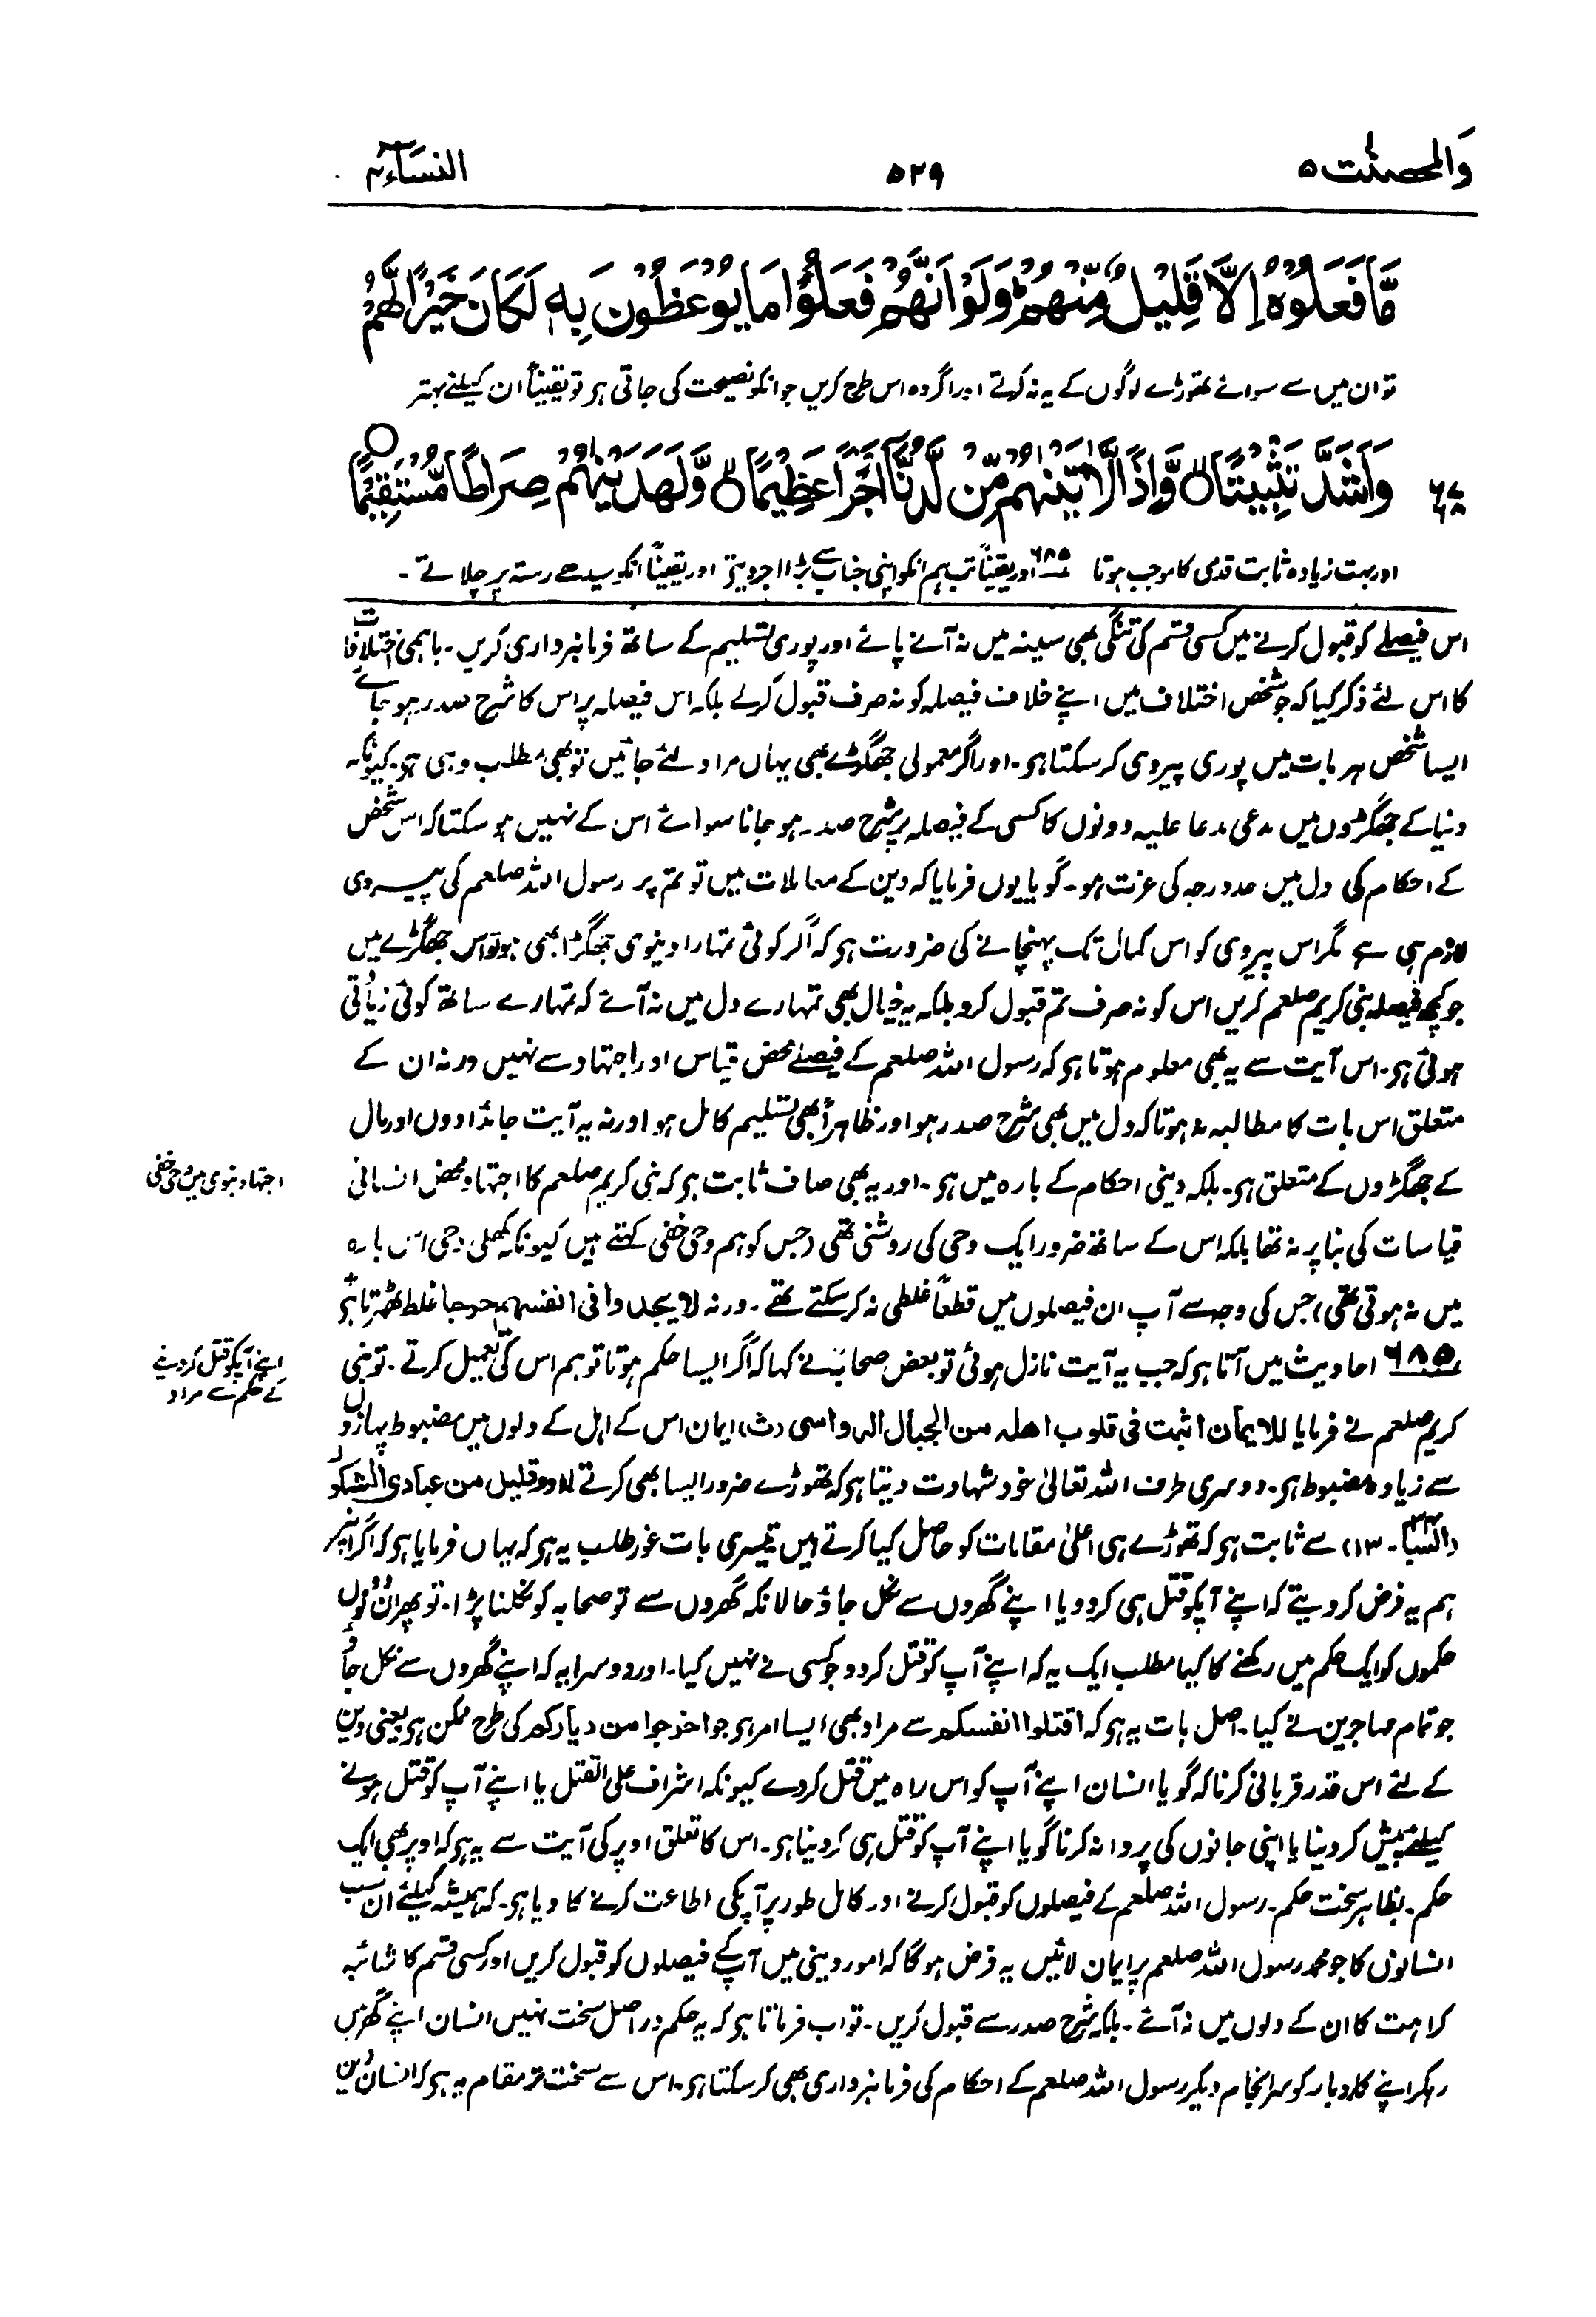 وَالمحصنٰت ۵
۵۲۹
النسَآء ۴
مَّا فَعَلُوْهُ اِلَّا قَلِيْلٌ مِّنْهُمْ ؕ وَلَوْ اَنَّهُمْ فَعَلُوْا مَا يُوْعَظُوْنَ بِهٖ لَكَانَ خَيْرًا لَّهُمْ
تو ان میں سے سوائے تھوڑے لوگوں کے یہ نہ کرتے اور اگر وہ اس طرح کریں جو انکو نصیحت کی جاتی ہو تو یقیناً ان کیلئے بہتر
وَاَشَدَّ تَثْبِيْتًا ۙ وَّاِذًا لَّاٰتَيْنٰهُمْ مِّنْ لَّدُنَّاۤ اَجْرًا عَظِيْمًا ۙ وَّلَهَدَيْنٰهُمْ صِرَاطًا مُّسْتَقِيْمًا
۶۷
۶۸
اور بہت زیادہ ثابت قدمی کا موجب ہوتا ۶۸۵ اور یقیناً تب ہم انکو اپنی جناب سے بڑا اجر دیتے اور یقیناً انکو سیدھے رستہ پر چلاتے ۔
اس فیصلے کو قبول کرنے میں کسی قسم کی تنگی بھی سینہ میں نہ آنے پائے اور پوری تسلیم کے ساتھ فرمانبرداری کریں ۔ باہمی اختلافات
کا اس لئے ذکر کیا کہ جو شخص اختلاف میں اپنے خلاف فیصلہ کو نہ صرف قبول کرلے بلکہ اس فیصلہ پر اس کا شرح صدر ہو جائے
ایسا شخص ہر بات میں پوری پیروی کر سکتا ہو ۔ اور اگر معمولی جھگڑے بھی یہاں مراد لئے جائیں تو بھی مطلب وہی ہو ۔ کیونکہ
دنیا کے جھگڑوں میں مدعی مدعا علیہ دونوں کا کسی کے فیصلہ پر شرح صدر ہو جانا سوائے اس کے نہیں ہو سکتا کہ اس شخص
کے احکام کی دل میں حد درجہ کی عزت ہو ۔ گویا یوں فرمایا کہ دین کے معاملات میں تو تم پر رسول اللہ صلعم کی پیروی
لازم ہی ہے مگر اس پیروی کو اس کمال تک پہنچانے کی ضرورت ہو کہ اگر کوئی تمہارا دنیوی جھگڑا بھی ہو تو اس جھگڑے میں
جو کچھ فیصلہ نبی کریم صلعم کریں اس کو نہ صرف تم قبول کرو بلکہ یہ خیال بھی تمہارے دل میں نہ آئے کہ تمہارے ساتھ کوئی زیادتی
ہوئی ہو ۔ اس آیت سے یہ بھی معلوم ہوتا ہو کہ رسول اللہ صلعم کے فیصلے محض قیاس اور اجتہاد سے نہیں ورنہ ان کے
متعلق اس بات کا مطالبہ نہ ہوتا کہ دل میں بھی شرح صدر ہو اور ظاہراً بھی تسلیم کامل ہو اور نہ یہ آیت جائدادوں اور مال
کے جھگڑوں کے متعلق ہو ۔ بلکہ دینی احکام کے بارہ میں ہو ۔ اور یہ بھی صاف ثابت ہو کہ نبی کریم صلعم کا اجتہاد محض انسانی
اجتہاد نبوی میں وحی خفی
قیاسات کی بنا پر نہ تھا بلکہ اس کے ساتھ ضرور ایک وحی کی روشنی تھی (جس کو ہم وحی خفی کہتے ہیں کیونکہ کھلی وحی اس بارہ
میں نہ ہوتی تھی) جس کی وجہ سے آپ ان فیصلوں میں قطعاً غلطی نہ کر سکتے تھے ۔ ورنہ لا یجدوا فی انفسهم حرجا غلط ٹھہرتا ہو
۶۸۵ احادیث میں آتا ہو کہ جب یہ آیت نازل ہوئی تو بعض صحابہ نے کہا کہ اگر ایسا حکم ہوتا تو ہم اس کی تعمیل کرتے ۔ تو نبی
اپنے آپکو قتل کر دینے
کے حکم سے مراد
کریم صلعم نے فرمایا للایمان اثبت فی قلوب اهله من الجبال الرواسی (ث) ایمان اس کے اہل کے دلوں میں مضبوط پہاڑوں
سے زیادہ مضبوط ہو ۔ دوسری طرف اللہ تعالیٰ خود شہادت دیتا ہو کہ تھوڑے ضرور ایسا بھی کرتے اور وقلیل من عبادی الشکور
(السبا ۳۴ ۔ ۱۳) سے ثابت ہو کہ تھوڑے ہی اعلیٰ مقامات کو حاصل کیا کرتے ہیں تیسری بات غور طلب یہ ہو کہ یہاں فرمایا ہو کہ اگر انپر
ہم یہ فرض کر دیتے کہ اپنے آپکو قتل ہی کردو یا اپنے گھروں سے نکل جاؤ حالانکہ گھروں سے تو صحابہ کو نکلنا پڑا ۔ تو پھر ان دونوں
حکموں کو ایک حکم میں رکھنے کا کیا مطلب ایک یہ کہ اپنے آپ کو قتل کردو جو کسی نے نہیں کیا ۔ اور دوسرا یہ کہ اپنے گھروں سے نکل جاؤ
جو تمام مہاجرین نے کیا ۔ اصل بات یہ ہو کہ اقتلوا انفسکم سے مراد بھی ایسا امر ہو جو اخرجوا من دیارکم کی طرح ممکن ہو یعنی دین
کے لئے اس قدر قربانی کرنا کہ گویا انسان اپنے آپ کو اس راہ میں قتل کردے کیونکہ اشراف علی القتل یا اپنے آپ کو قتل ہونے
کیلئے پیش کر دینا یا اپنی جانوں کی پروا نہ کرنا گویا اپنے آپ کو قتل ہی کر دینا ہو ۔ اس کا تعلق اوپر کی آیت سے یہ ہو کہ اوپر بھی ایک
حکم ۔ بظاہر سخت حکم ۔ رسول اللہ صلعم کے فیصلوں کو قبول کرنے اور کامل طور پر آپکی اطاعت کرنے کا دیا ہو ۔ کہ ہمیشہ کیلئے ان سب
انسانوں کا جو محمد رسول اللہ صلعم پر ایمان لائیں یہ فرض ہو گا کہ امور دینی میں آپ کے فیصلوں کو قبول کریں اور کسی قسم کا شائبہ
کراہت کا ان کے دلوں میں نہ آئے ۔ بلکہ شرح صدر سے قبول کریں ۔ تو اب فرماتا ہو کہ یہ حکم دراصل سخت نہیں انسان اپنے گھر میں
رہکر اپنے کاروبار کو سرانجام دیکر رسول اللہ صلعم کے احکام کی فرمانبرداری بھی کر سکتا ہو ۔ اس سے سخت تر مقام یہ ہو کہ انسان دین